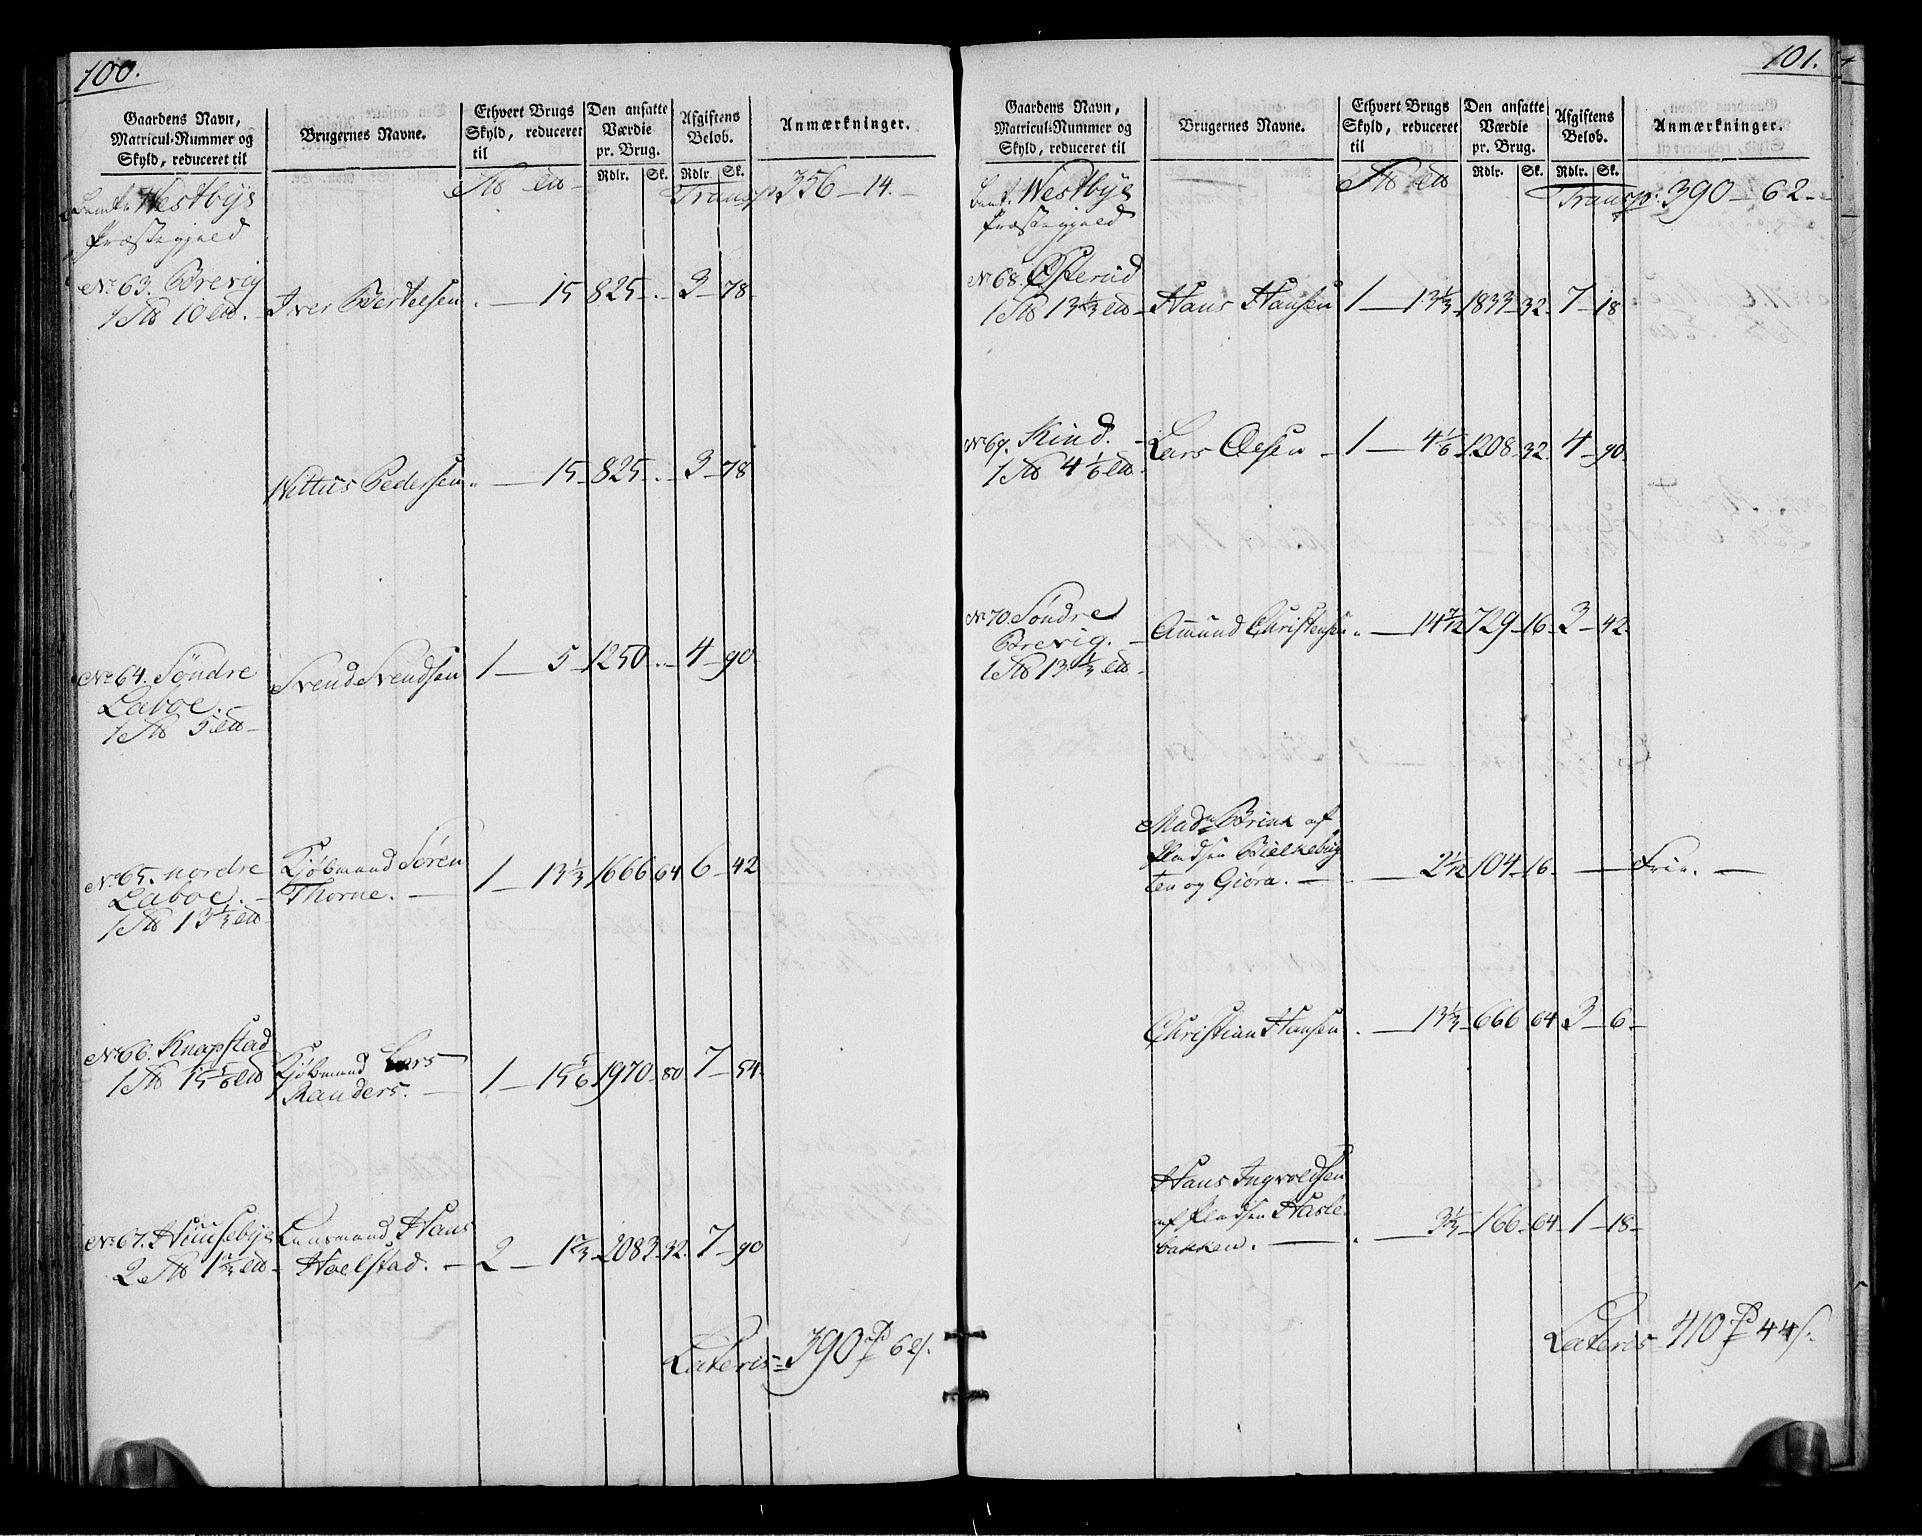 100.
Gaardens Navn,
Matricul-Nummer og
Skyld, reduceret til
Brugernes Navne.
Ethvert Brugs
Skyld, reduceret
til
Den ansatte
Værdie
pr. Brug.
Rdlr. Sk.
Afgiftens
Beløb.
Rdlr. Sk.
Anmærkninger.
Westbye
Præstegjeld
Transp. 356 - 14.
No 63. Brevig
Iver Bertelsen . — 15 - 825 - . - 3 - 78.
Wittus Pedersen . — 15 - 825 - . - 3 - 78
No 64. Søndre
Laboe.
Svend Svendsen 1 — 5 - 1250 . - 4 - 90
No 65. nordre
Laboe.
Kjøbmand Søren
Thorne. — 1 — 13 1/3 1666 64 6 - 42
No 66. Knapstad
Kjøbmand Lars
Randers. — 1 — 15 5/6 1970 - 80 7 - 54.
No 67. Huusebye
Lensmand Hans
Hoelstad. — 2 — 1 2/3 - 2083 - 32. 7 - 90
Lateris 390 62 s.
101.
Gaardens Navn,
Matricul-Nummer og
Skyld, reduceret til
Brugernes Navne.
Ethvert Brugs
Skyld, reduceret
til
Den ansatte
Værdie
pr. Brug.
Rdlr. Sk.
Afgiftens
Beløb.
Rdlr. Sk.
Anmærkninger.
Westbye
Præstegjeld
Transp. 390 - 62 -
No 68. Østerud
Hans Hansen 1 — 13 1/3 - 1833 - 32. 7 - 18
No 69. Kind.
Lars Olesen - 1 — 4 1/6 - 1208 - 32. 4 - 90.
No 70. Søndre
Brevig.
Amund Christensen . — 14 7/12 729 - 16 - 3 - 42.
af
Pladsen
ten og Giora. — . — 2 1/12 104 - 16. — Frie. —
Christian Hansen . — 13 1/3 - 666 64 3 - 6 -
Hans Ingvoldsen
af Pladsen Hasle-
bakken. — . — 3 1/3 - 166 - 64 - 1 - 18 -
Lateris 410 44 s.